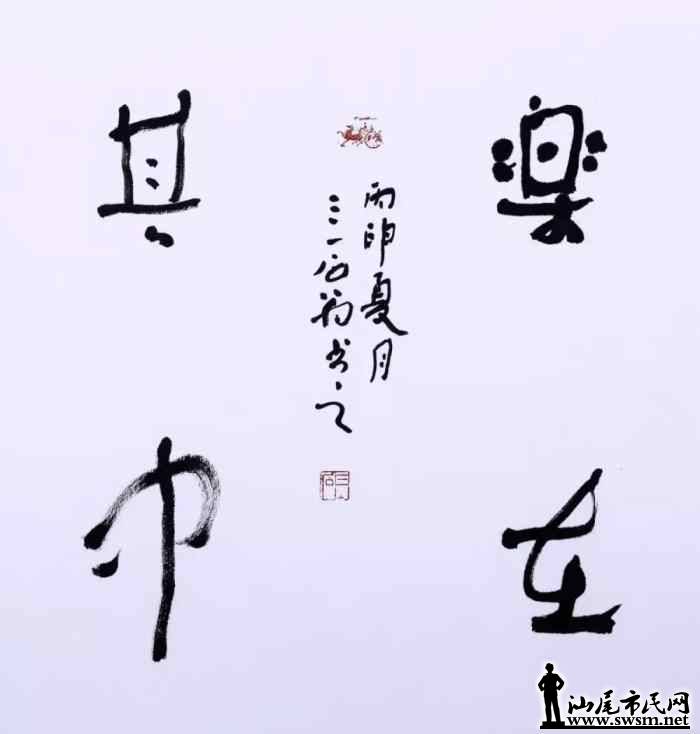 樂在
其中
丙申夏月
三一石翁书之
汕尾市民网
www.swsm.net